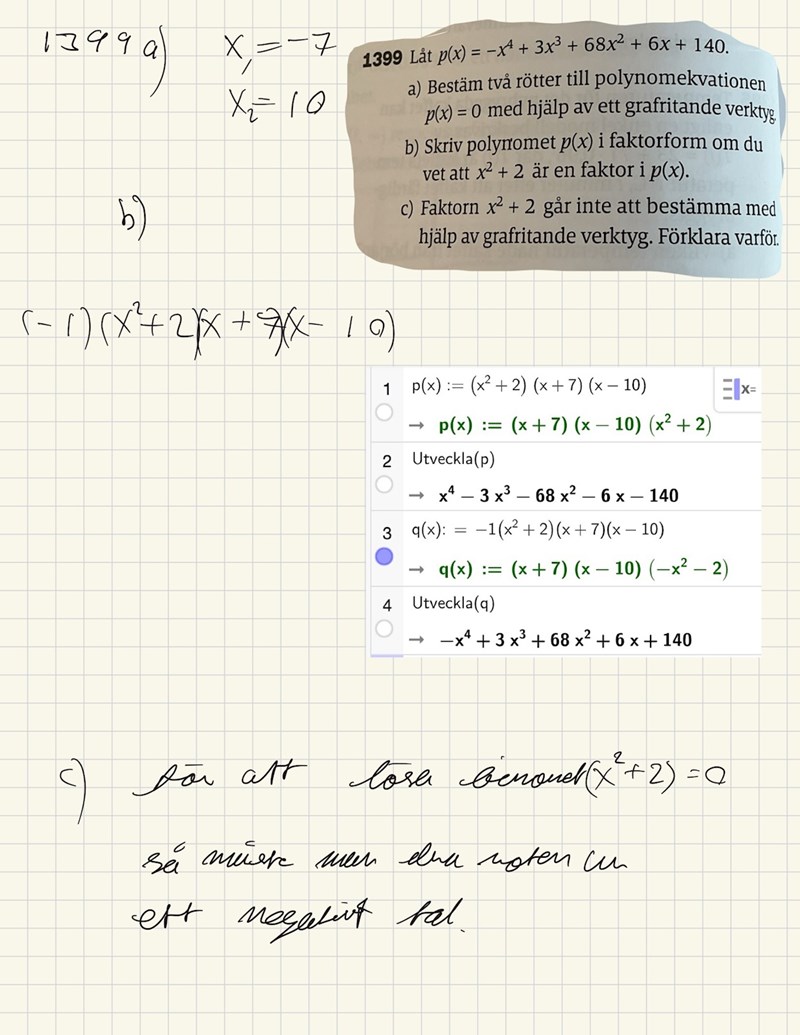 1399 a) x₁ = -7
x₂ = 10
1399 Låt p(x) = −x⁴ + 3x³ + 68x² + 6x + 140.
a) Bestäm två rötter till polynomekvationen
p(x) = 0 med hjälp av ett grafritande verktyg.
b) Skriv polynomet p(x) i faktorform om du
vet att x² + 2 är en faktor i p(x).
c) Faktorn x² + 2 går inte att bestämma med
hjälp av grafritande verktyg. Förklara varför.
b)
(-1)(x²+2)(x+7)(x-10)
1 p(x) := (x² + 2) (x + 7) (x − 10)
→ p(x) := (x + 7) (x − 10) (x² + 2)
x=
2 Utveckla(p)
→ x⁴ − 3 x³ − 68 x² − 6 x − 140
3 q(x): = −1(x² + 2)(x + 7)(x − 10)
→ q(x) := (x + 7) (x − 10) (−x² − 2)
4 Utveckla(q)
→ −x⁴ + 3 x³ + 68 x² + 6 x + 140
c) För att lösa (x²+2) = 0
så måste man dra roten ur
ett negativt tal.